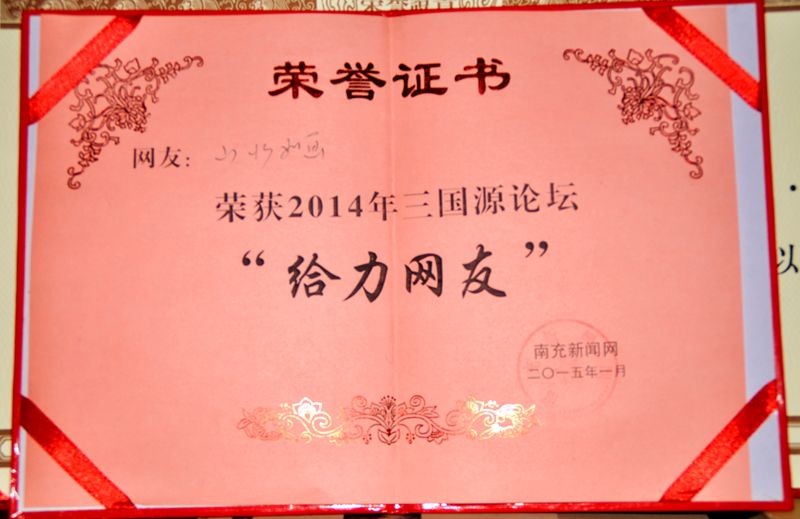 荣誉证书
网友：山水如画
荣获2014年三国源论坛
“给力网友”
南充新闻网
二〇一五年一月
以